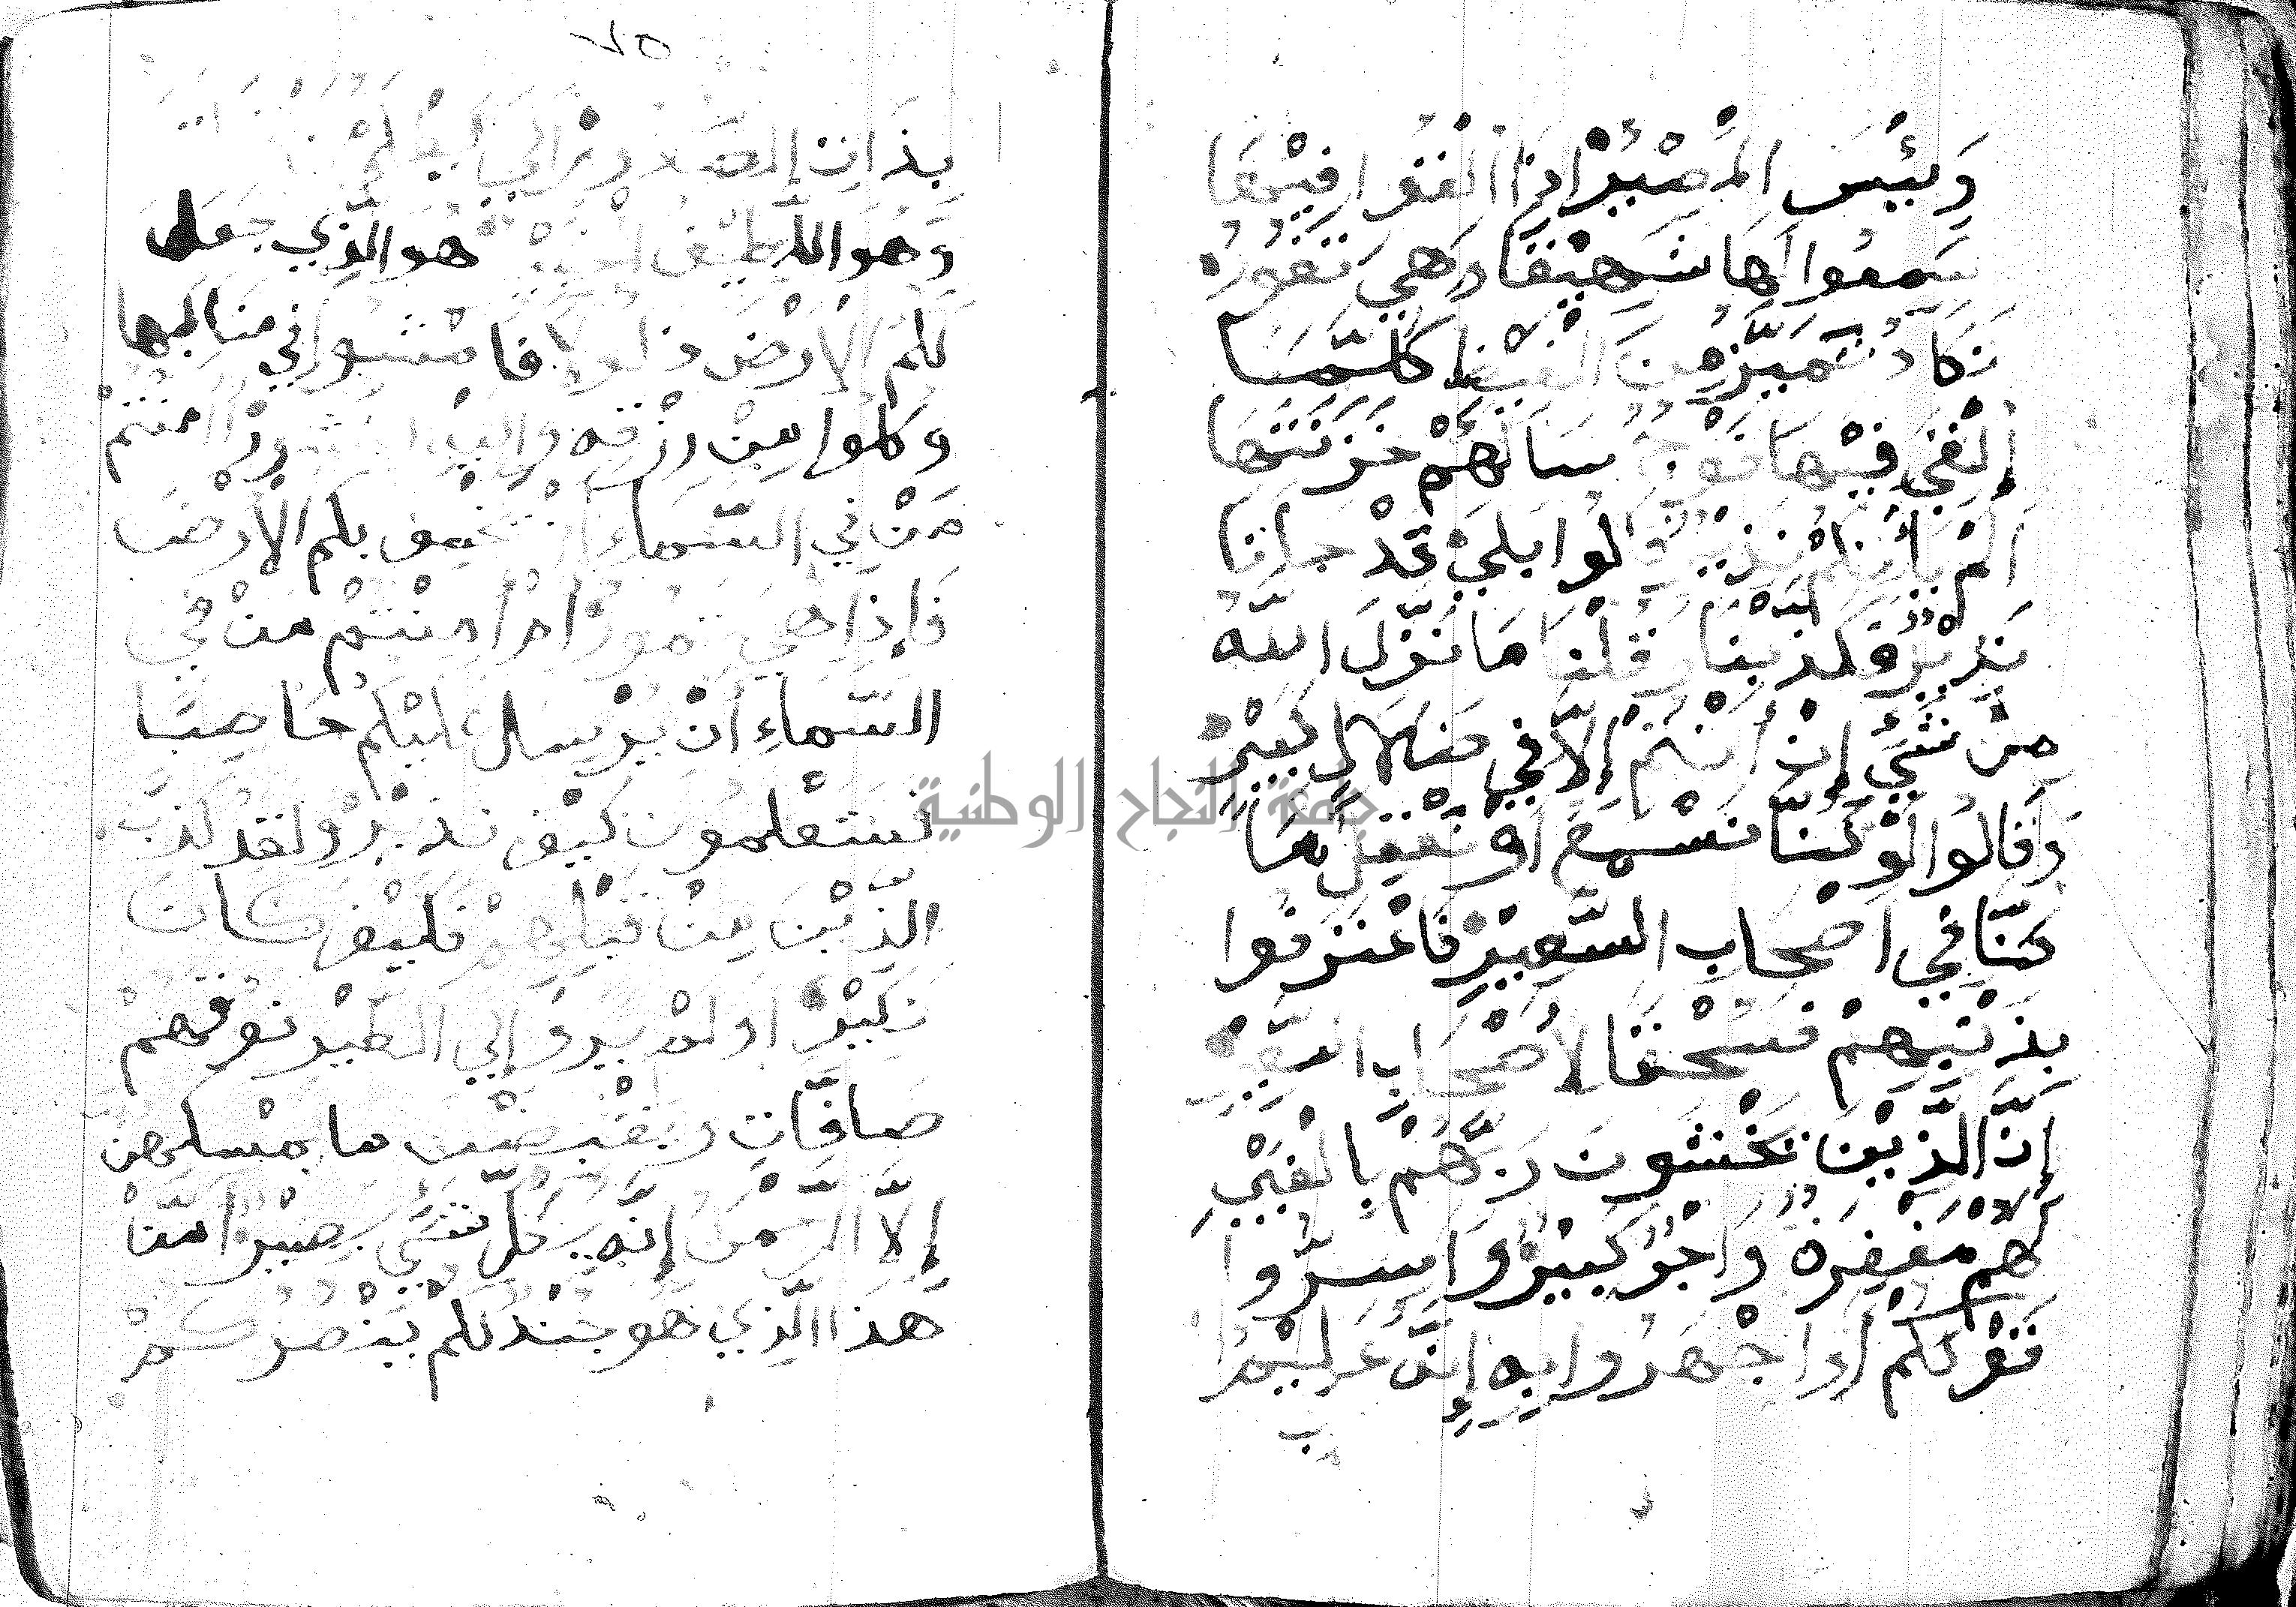 وَبِئْسَ الْمَصِيْرُ اِذَا الْقُوا فِيْهَا
سَمِعُوا لَهَا شَهِيْقًا وَهِيَ تَفُوْرُ
تَكَادُ تَمَيَّزُ مِنَ الْغَيْظِ كُلَّمَا
اُلْقِيَ فِيْهَا فَوْجٌ سَاَلَهُمْ خَزَنَتُهَا
اَلَمْ يَأْتِكُمْ نَذِيْرٌ قَالُوا بَلَىْ قَدْ جَانَا
نَذِيْرٌ فَكَذَّبْنَا وَقُلْنَا مَا نَزَّلَ اللّٰهُ
مِنْ شَيْءٍ إِنْ اَنْتُمْ إِلَّا فِي ضَلَالٍ كَبِيْرٍ
وَقَالُوا لَوْ كُنَّا نَسْمَعُ اَوْ نَعْقِلُ مَا
كُنَّا فِي اَصْحَابِ السَّعِيْرِ فَاعْتَرَفُوا
بِذَنْبِهِمْ فَسُحْقًا لِاَصْحَابِ السَّعِيْرِ
إِنَّ الَّذِيْنَ يَخْشَوْنَ رَبَّهُمْ بِالْغَيْبِ
لَهُمْ مَغْفِرَةٌ وَاَجْرٌ كَبِيْرٌ وَاَسِرُّوا
قَوْلَكُمْ اَوِ اجْهَرُوا بِهِ إِنَّهُ عَلِيْمٌ
٧٥
بِذَاتِ الصُّدُوْرِ اَلَا يَعْلَمُ
وَهُوَ اللَّطِيْفُ الْخَبِيْرُ هُوَ الَّذِي جَعَلَ
لَكُمُ الْاَرْضَ ذَلُولًا فَامْشُوا فِي مَنَاكِبِهَا
وَكُلُوا مِنْ رِزْقِهِ وَاِلَيْهِ النُّشُوْرُ اَاَمِنْتُمْ
مَنْ فِي السَّمَاءِ اَنْ يَخْسِفَ بِكُمُ الْاَرْضَ
فَاِذَا هِيَ تَمُوْرُ اَمْ اَمِنْتُمْ مَنْ فِي
السَّمَاءِ اَنْ يُرْسِلَ عَلَيْكُمْ حَاصِبًا
فَسَتَعْلَمُوْنَ كَيْفَ نَذِيْرِ وَلَقَدْ كَذَّبَ
الَّذِيْنَ مِنْ قَبْلِهِمْ فَكَيْفَ كَانَ
نَكِيْرِ اَوَلَمْ يَرَوْا إِلَى الطَّيْرِ فَوْقَهُمْ
صَافَّاتٍ وَيَقْبِضْنَ مَا يُمْسِكُهُنَّ
إِلَّا الرَّحْمٰنُ إِنَّهُ بِكُلِّ شَيْءٍ بَصِيْرٌ اَمَّنْ
هَذَا الَّذِي هُوَ جُنْدٌ لَكُمْ يَنْصُرُكُمْ
جامعة النجاح الوطنية